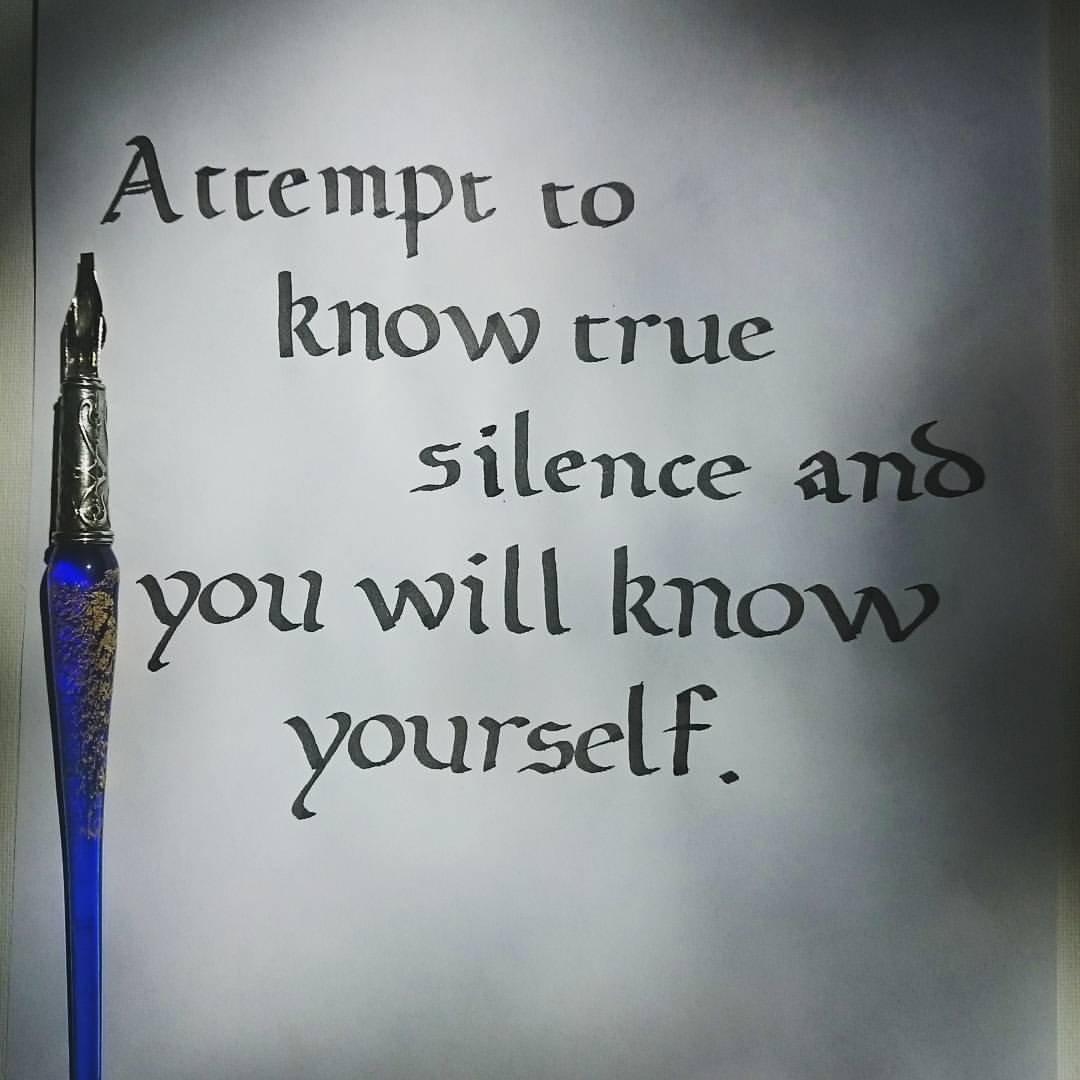 Attempt to
know true
silence and
you will know
yourself.